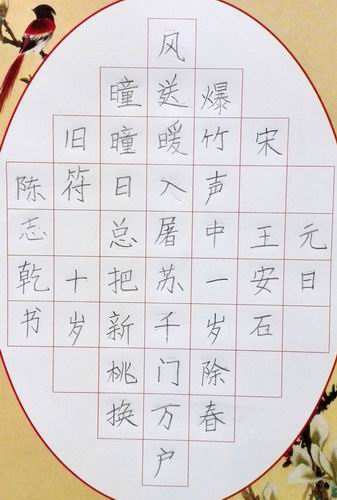 元日
宋 王安石
爆竹声中一岁除春
风送暖入屠苏千门万户
曈曈日总把新桃换
旧符 十岁
陈志乾书